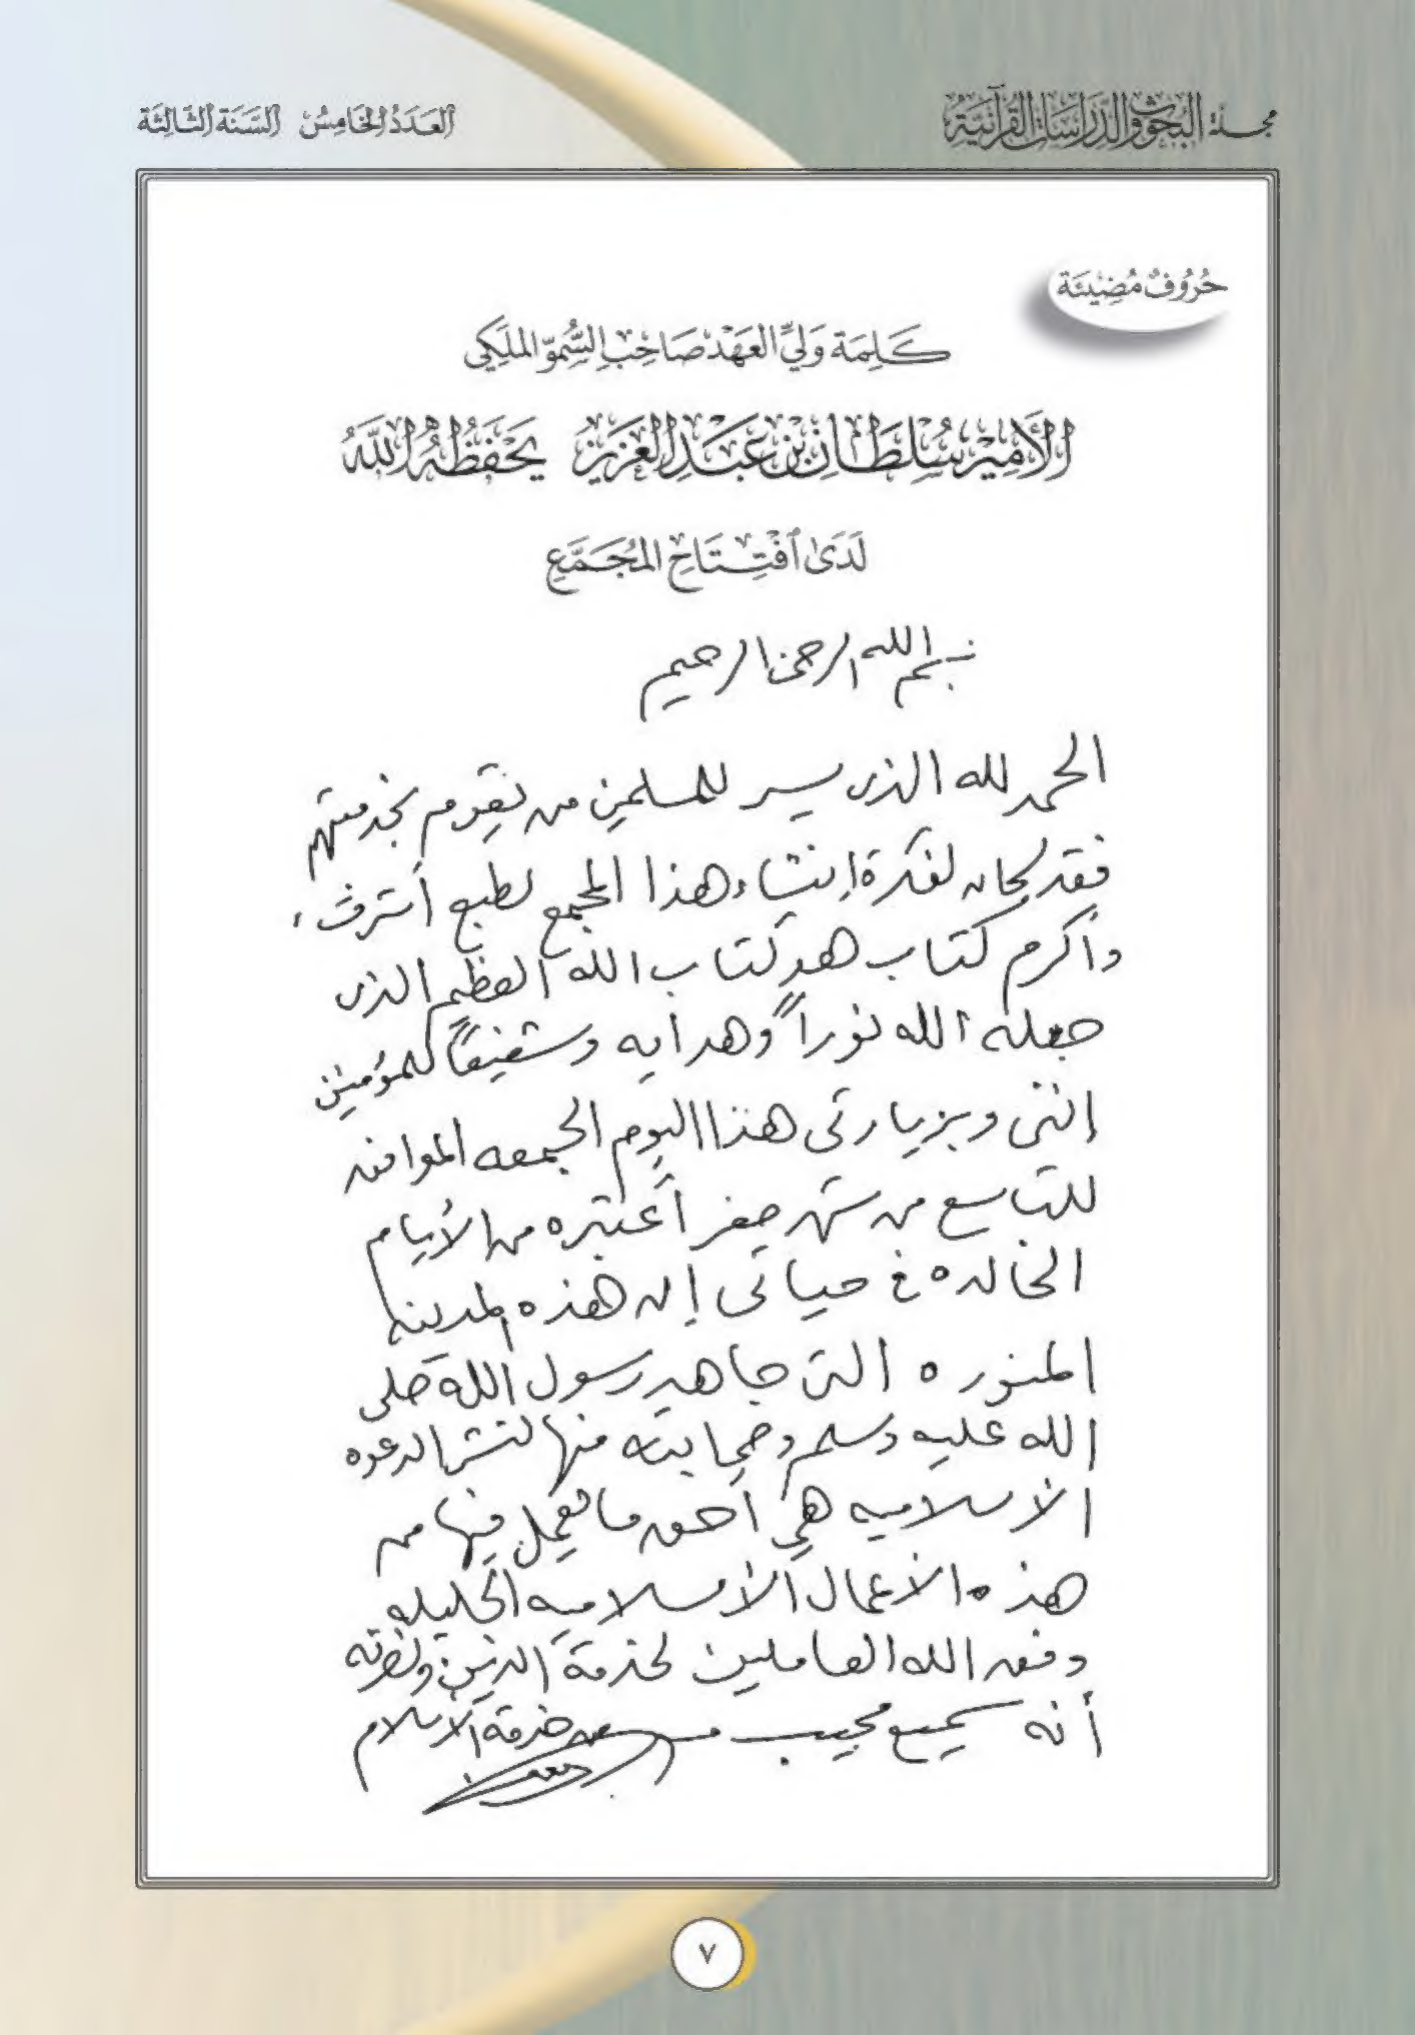 مجلة البحوث والدراسات القرآنية
العَدَدُ الخَامِسُ السَّنَة الثَّالِثَة
حُرُوفٌ مُضِيئَة
كَلِمَة وَلِيِّ العَهْد صَاحِبِ السُّمُوّ المَلَكِي
الأَمِيْر سُلطَان بْن عَبْدِ العَزِيْز يَحْفَظُهُ اللَّهُ
لَدَى ٱفْتِتَاحِ المُجَمَّعِ
بسم الله الرحمن الرحيم
الحمد لله الذى يسر للمسلمين من يقوم بخدمتهم
فقد كان لفكرة إنشاء هذا المجمع لطبع أشرف
وأكرم كتاب هو كتاب الله العظيم الذى
جعله الله نوراً وهدايه وشفيعاً للمؤمنين
إننى وبزيارتى هذا اليوم الجمعه الموافق
للتاسع من شهر صفر أعتبره من الأيام
الخالده في حياتى إن هذه المدينه
المنوره التى جاهد رسول الله صلى
الله عليه وسلم وصحابته منها لنشر الدعوه
الاسلاميه هي أحق ما نعمل فيها من
هذه الأعمال الأسلاميه الجليله
وفق الله العاملين لخدمة الدين ونصرته
أنه سميع مجيب خدمة الأسلام
٧